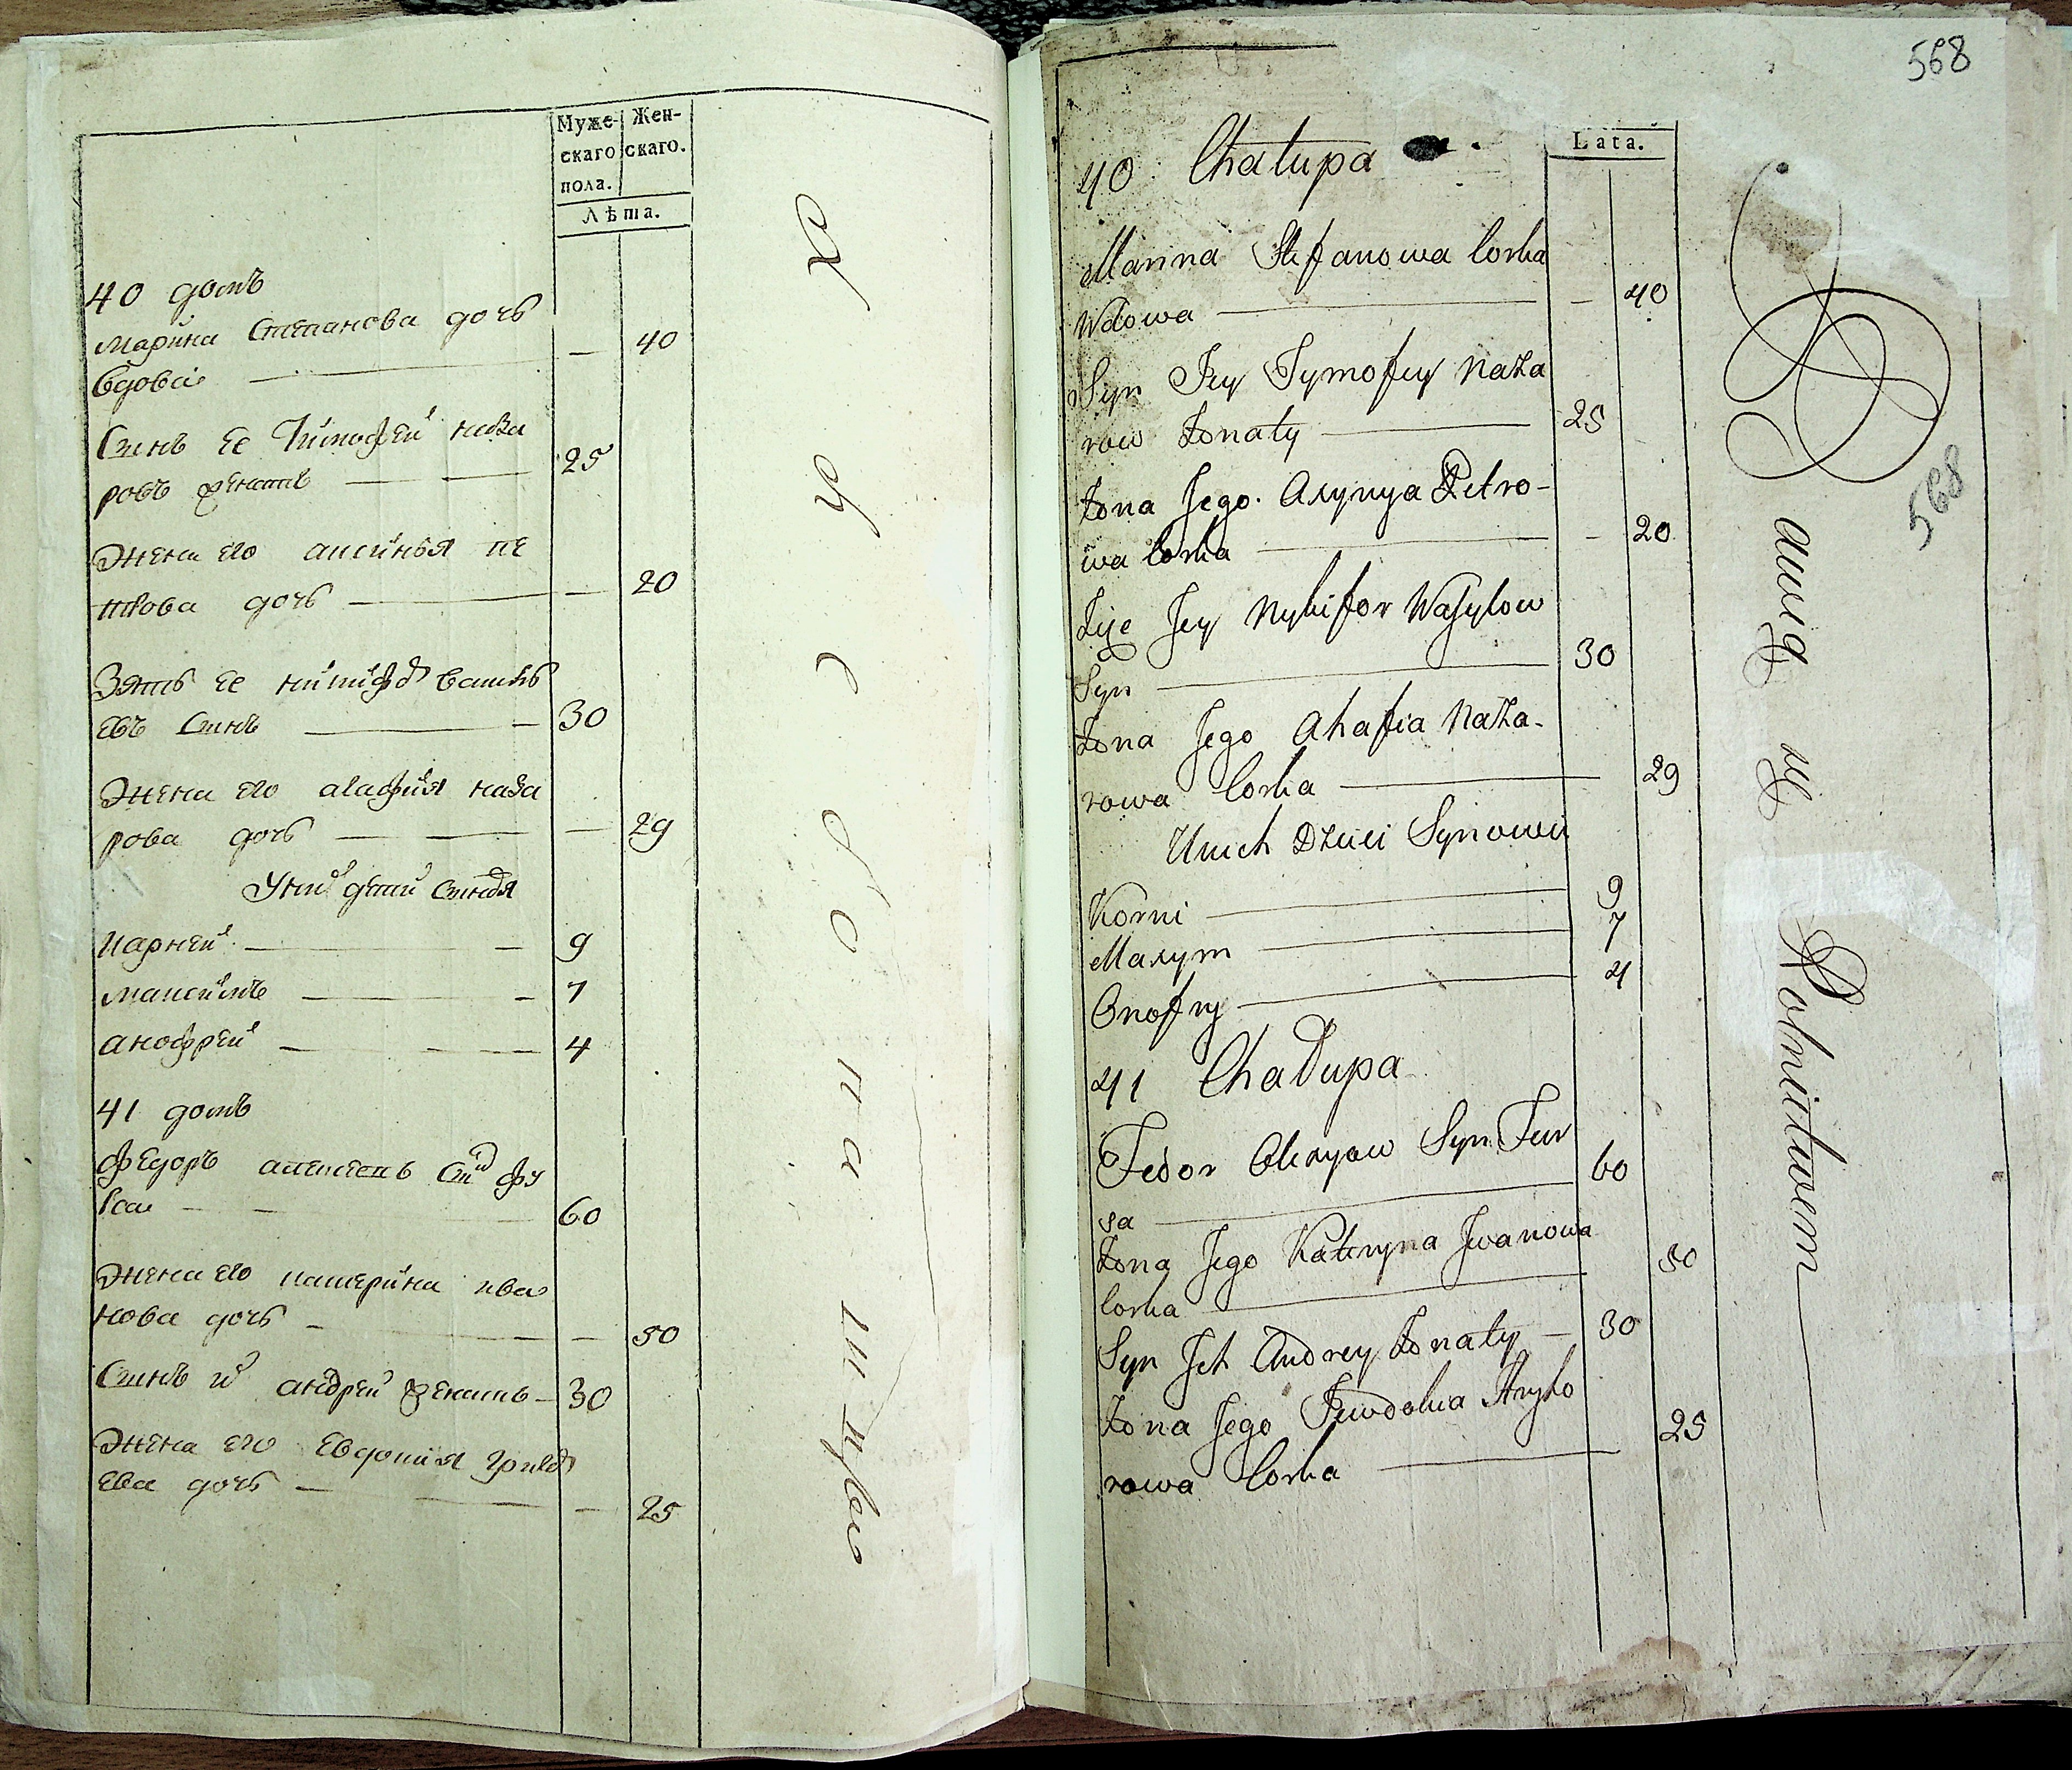 Муже-
скаго
пола.
Жен-
скаго.
Лѣта.
40 домъ
марина Степанова дочь
вдова — 40
Синъ ее Тимофей наза
ровъ женатъ 25
Жена его аксинья пе
трова дочь — 20
Зять ее никифоръ василь
евъ синъ — 30
Жена его агафия наза
рова дочь — 29
У них дети синовя
карней — 9
максимъ — 7
анофрей — 4
41 домъ
Федоръ алексеевъ синъ фу
рса — 60
Жена его катерина ива
нова дочь — 50
Синъ их андрей женатъ — 30
Жена его Евдокия григор
ева дочь — 25
568
Lata.
40 Chałupa
Marina Stefanowa Corka
Wdowa — 40
Syn Jey Tymofiey Naza
row Żonaty — 25
Żona Jego Axynya Petro-
wa Corka — 20
Zięć Jey Nykifor Wasylow
Syn — 30
Żona Jego Ahafia Naza-
rowa Corka — 29
U nich Dzieci Synowie
Korni — 9
Maxym — 7
Onofry — 4
41 Chałupa
Fedor Olexyow Syn Fur
sa — 60
Żona Jego Kateryna Jwanowa
Corka — 50
Syn Jch Andrey Żonaty — 30
Żona Jego Jewdokia Hryho
rowa Corka — 25
568